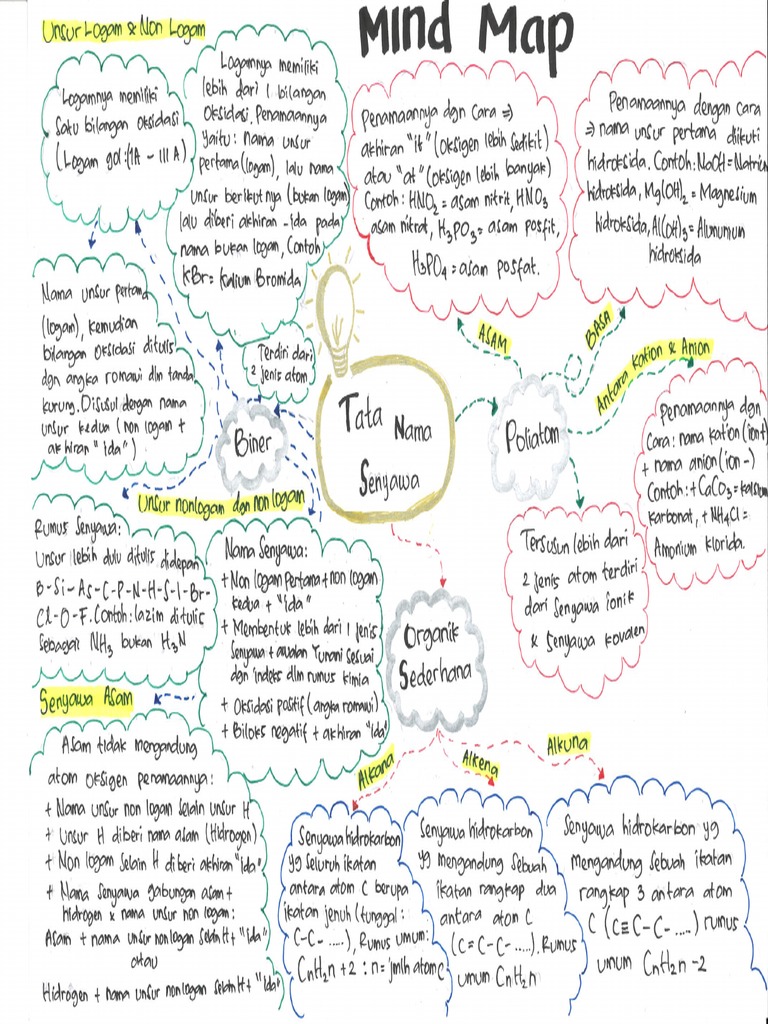 Mind Map
Unsur Logam & Non Logam
Logamnya memiliki
satu bilangan oksidasi
(Logam gol : IA – III A)
Logamnya memiliki
lebih dari 1 bilangan
Oksidasi. Penamaannya
yaitu: nama unsur
pertama (logam), lalu nama
unsur berikutnya (bukan logam)
lalu diberi akhiran -ida pada
nama bukan logam, Contoh
KBr = Kalium Bromida
Penamaannya dgn Cara =>
akhiran "it" (oksigen lebih sedikit)
atau "at" (oksigen lebih banyak)
Contoh : HNO2 = asam nitrit, HNO3
asam nitrat, H3PO3 = asam posfit,
H3PO4 = asam posfat.
Penamaannya dengan cara
=> nama unsur pertama diikuti
hidroksida. Contoh: NaOH = Natrium
hidroksida, Mg(OH)2 = Magnesium
hidroksida, Al(OH)3 = Alumunum
hidroksida
Nama unsur pertama
(logam), kemudian
bilangan oksidasi ditulis
dgn angka romawi dlm tanda
kurung. Disusul dengan nama
unsur kedua (non logam +
akhiran "ida")
Terdiri dari
2 jenis atom
ASAM
BASA
Antara Kation & Anion
Biner
Tata Nama
Senyawa
Poliatom
Penamaannya dgn
Cara : nama kation (ion+)
+ nama anion (ion -)
Contoh : + CaCO3 = kalsium
karbonat, + NH4Cl =
Amonium klorida.
Unsur nonlogam dgn non logam
Rumus Senyawa :
Unsur lebih dulu ditulis didepan
B-Si-As-C-P-N-H-S-I-Br-
Cl-O-F. Contoh : lazim ditulis
sebagai NH3 bukan H3N
Nama Senyawa :
+ Non logam Pertama + non logam
kedua + "ida"
+ Membentuk lebih dari 1 jenis
Senyawa + awalan Yunani sesuai
dgn indeks dlm rumus kimia
+ Oksidasi positif (angka romawi)
+ Biloks negatif + akhiran "ida"
Tersusun lebih dari
2 jenis atom terdiri
dari Senyawa ionik
& senyawa kovalen
Organik
Sederhana
Senyawa Asam
Asam tidak mengandung
atom oksigen penamaannya :
+ Nama unsur non logam selain unsur H
+ Unsur H diberi nama asam (Hidrogen)
+ Non logam selain H diberi akhiran "ida"
+ Nama Senyawa gabungan asam +
hidrogen & nama unsur non logam :
Asam + nama unsur nonlogam selain H + "ida"
atau
Hidrogen + nama unsur nonlogam selain H + "ida"
Alkana
Alkena
Alkuna
Senyawa hidrokarbon
yg seluruh ikatan
antara atom C berupa
ikatan jenuh (tunggal :
C-C- .....), Rumus umum :
CnH2n + 2 : n = jmlh atom C
Senyawa hidrokarbon
yg mengandung sebuah
ikatan rangkap dua
antara atom C
(C=C-C- .....). Rumus
umum CnH2n
Senyawa hidrokarbon yg
Mengandung sebuah ikatan
rangkap 3 antara atom
C (C≡C-C- .....) rumus
umum CnH2n -2